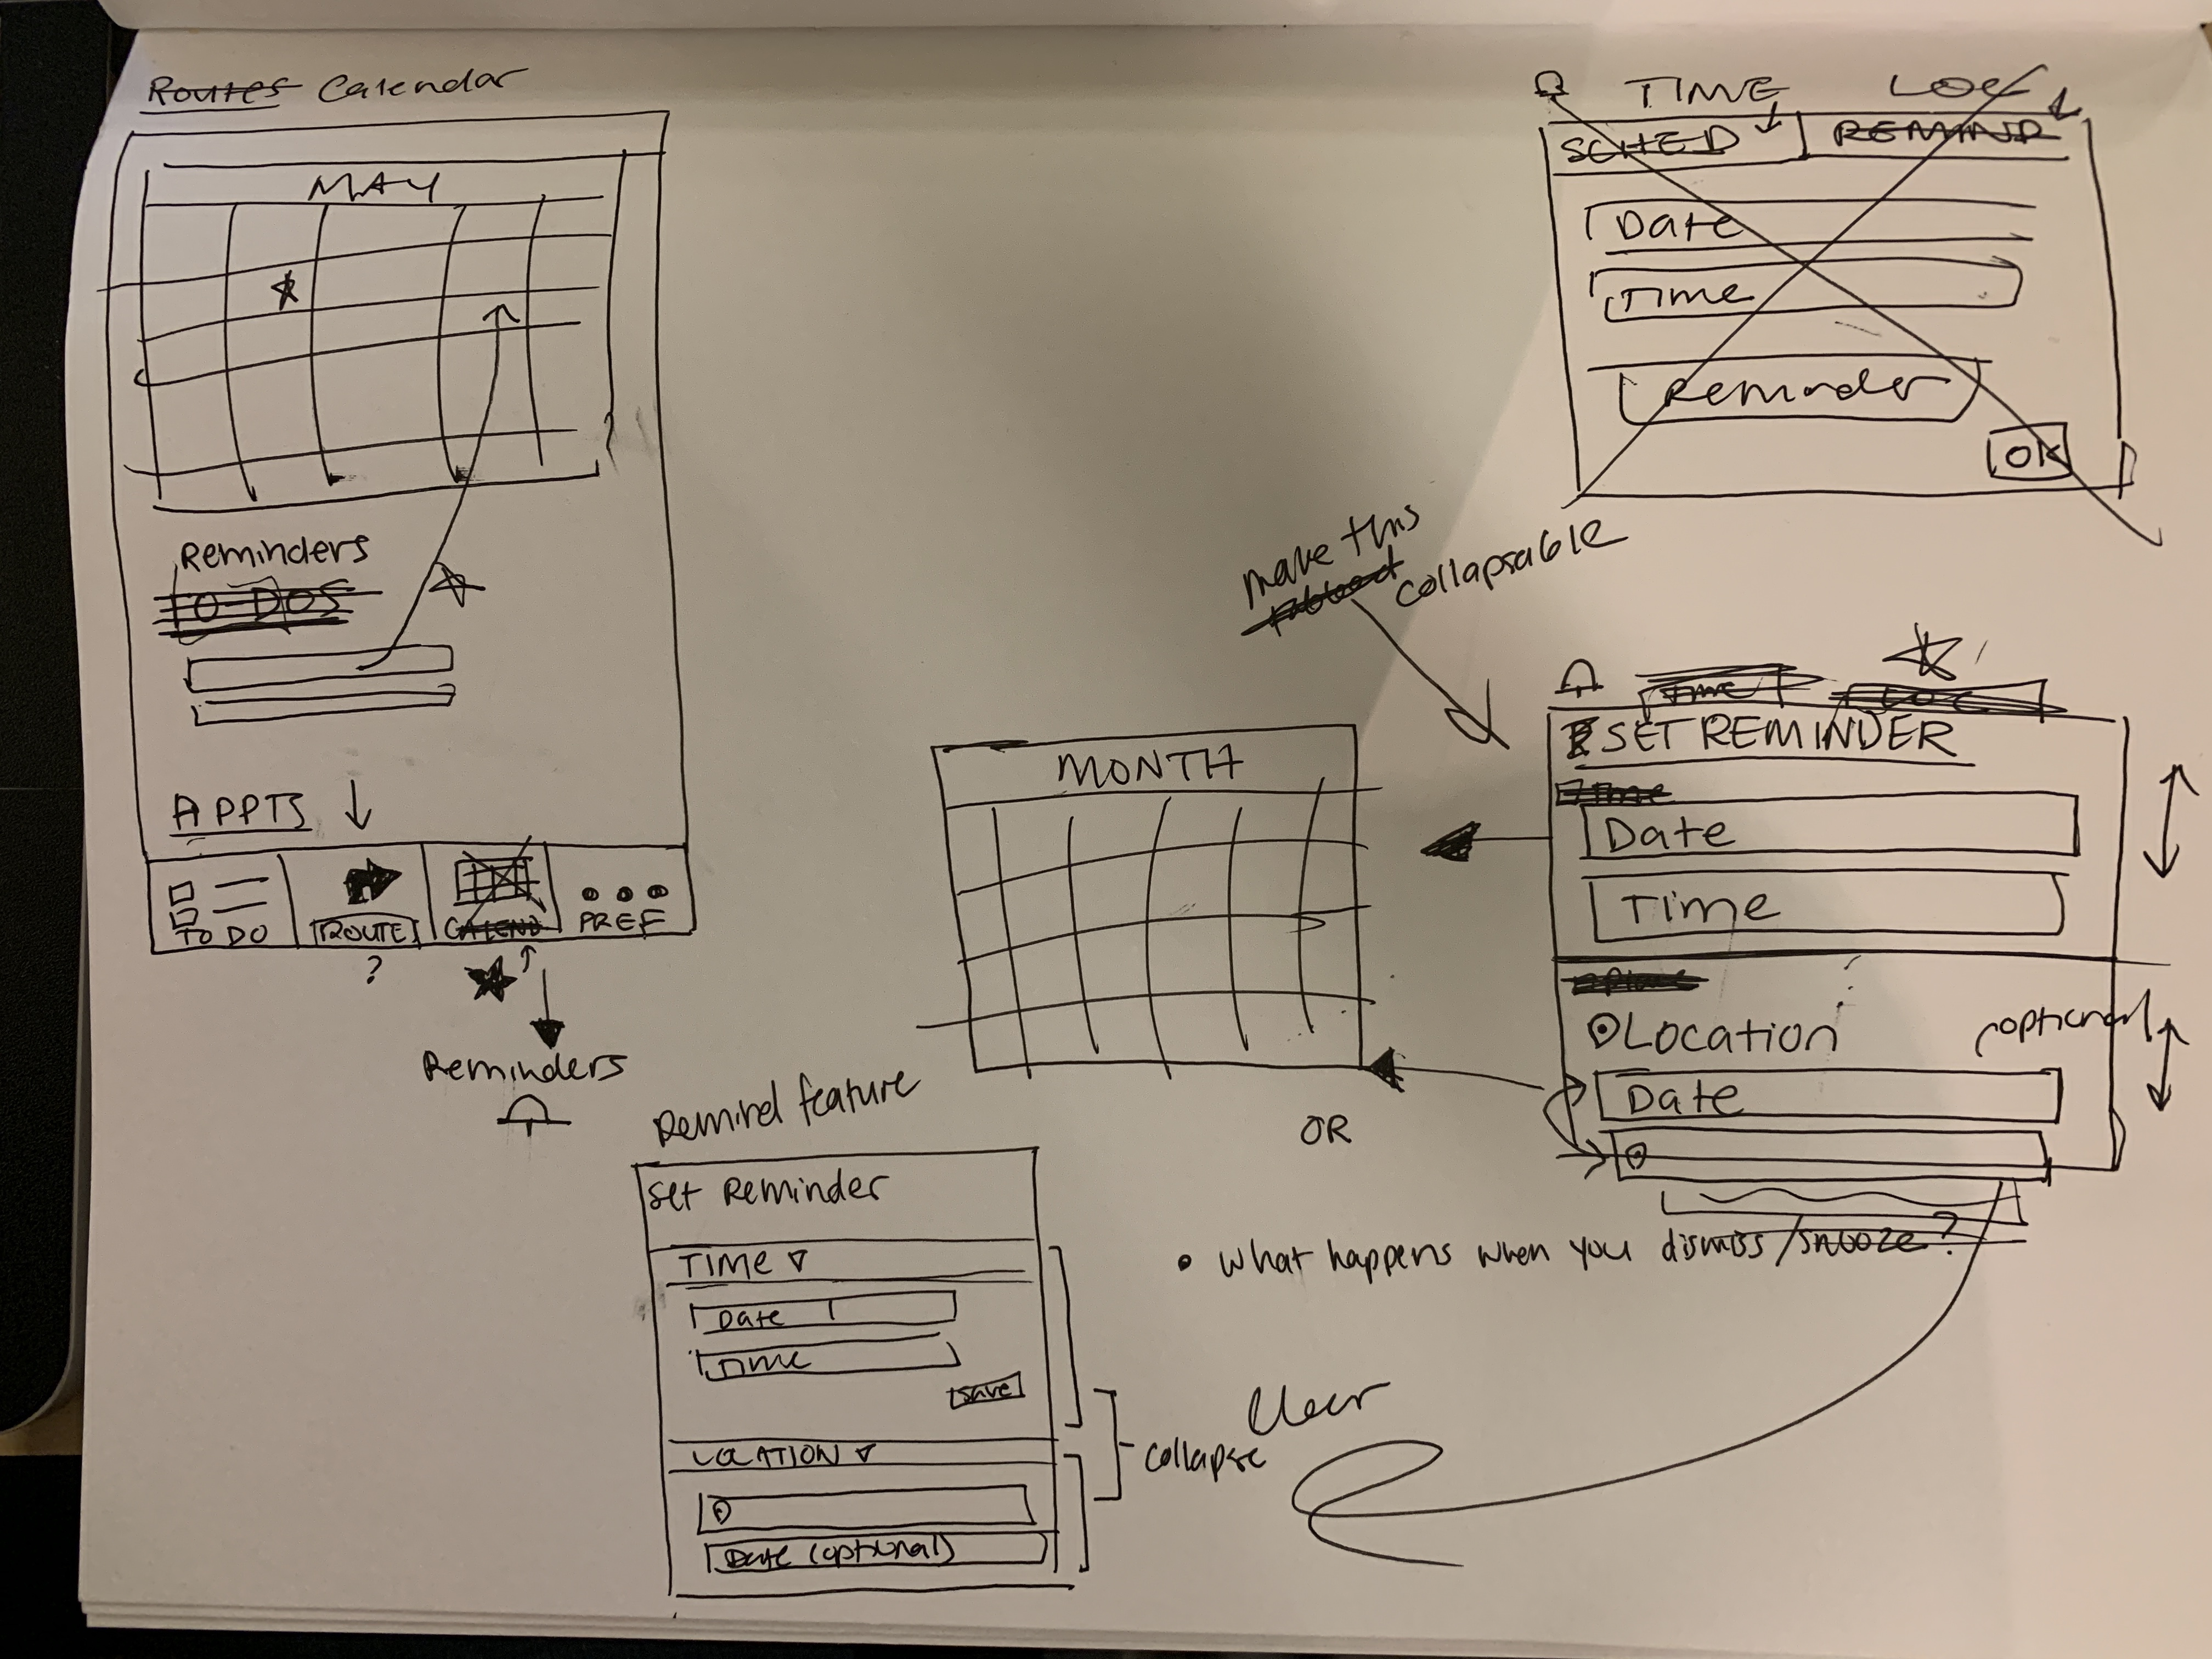 Routes Calendar
MAY
Reminders
TO-DOS
APPTS
TO DO
ROUTE
CALEND
PREF
?
Reminders
TIME LOC
SCHED REMIND
Date
Time
Reminder
OK
make this
collapsable
TIME
LOC
SET REMINDER
Time
Date
Time
Location
(optional)
Date
MONTH
OR
Remind feature
Set Reminder
TIME
Date
TIME
save
LOCATION
Date (optional)
collapse
• What happens when you dismiss/snooze?
Clear